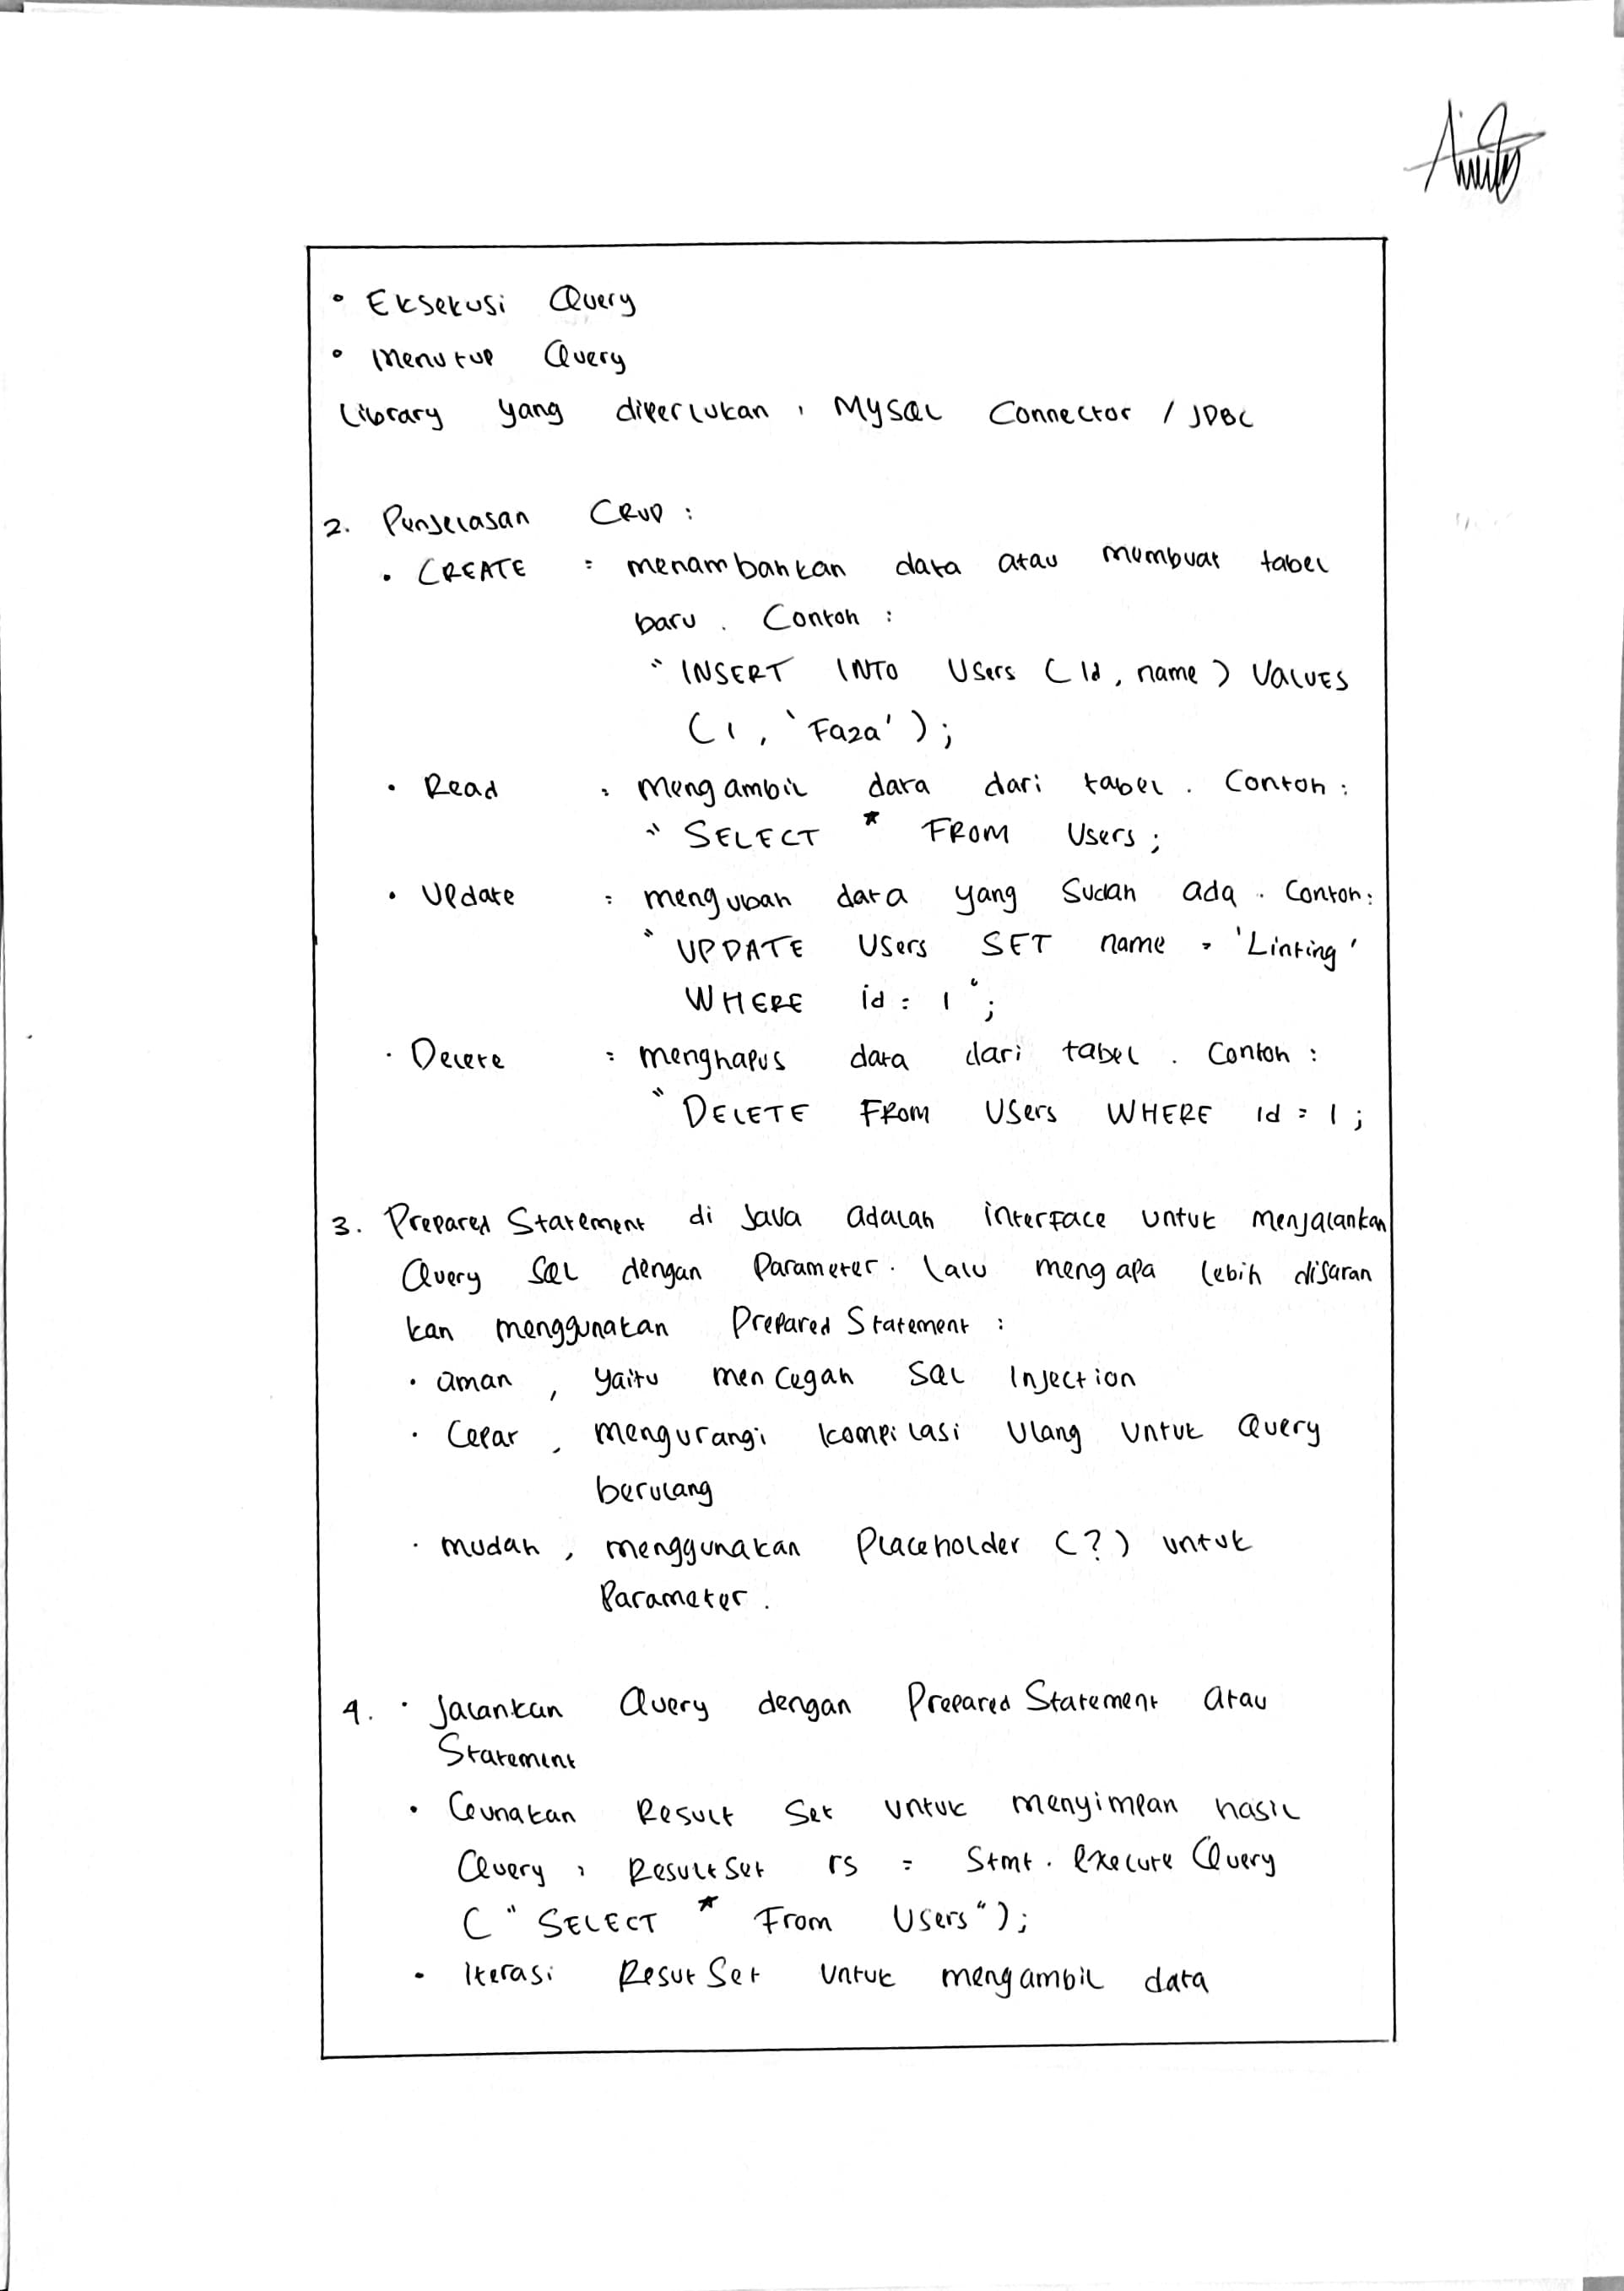 • Eksekusi Query
• Menutup Query
Library yang diperlukan , MySQL Connector / JDBC
2. Penjelasan CRUD :
• CREATE : menambahkan data atau membuat tabel
baru . Contoh :
" INSERT INTO Users ( Id, name ) VALUES
( 1 , 'Faza' ) ;
• Read : mengambil data dari tabel . Contoh :
" SELECT * FROM Users ;
• Update : mengubah data yang sudah ada . Contoh :
" UPDATE Users SET name = 'Linting'
WHERE id = 1 " ;
• Delete : menghapus data dari tabel . Contoh :
" DELETE FROM Users WHERE id = 1 ;
3. Prepared Statement di Java adalah interface untuk menjalankan
Query SQL dengan Parameter. Lalu mengapa lebih disaran
kan menggunakan Prepared Statement :
• aman , yaitu mencegah SQL Injection
• Cepat , mengurangi kompilasi ulang untuk Query
berulang
• mudah , menggunakan Placeholder (?) untuk
Parameter .
4. • Jalankan Query dengan Prepared Statement atau
Statement
• Gunakan Result Set untuk menyimpan hasil
Query , ResultSet rs = Stmt . execute Query
( " SELECT * From Users " ) ;
• Iterasi Resut Set untuk mengambil data